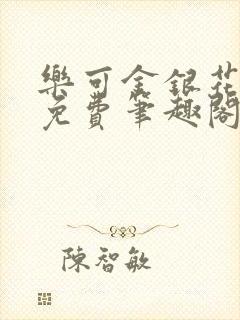 樂可金銀花
免費筆趣閣
陳智敏